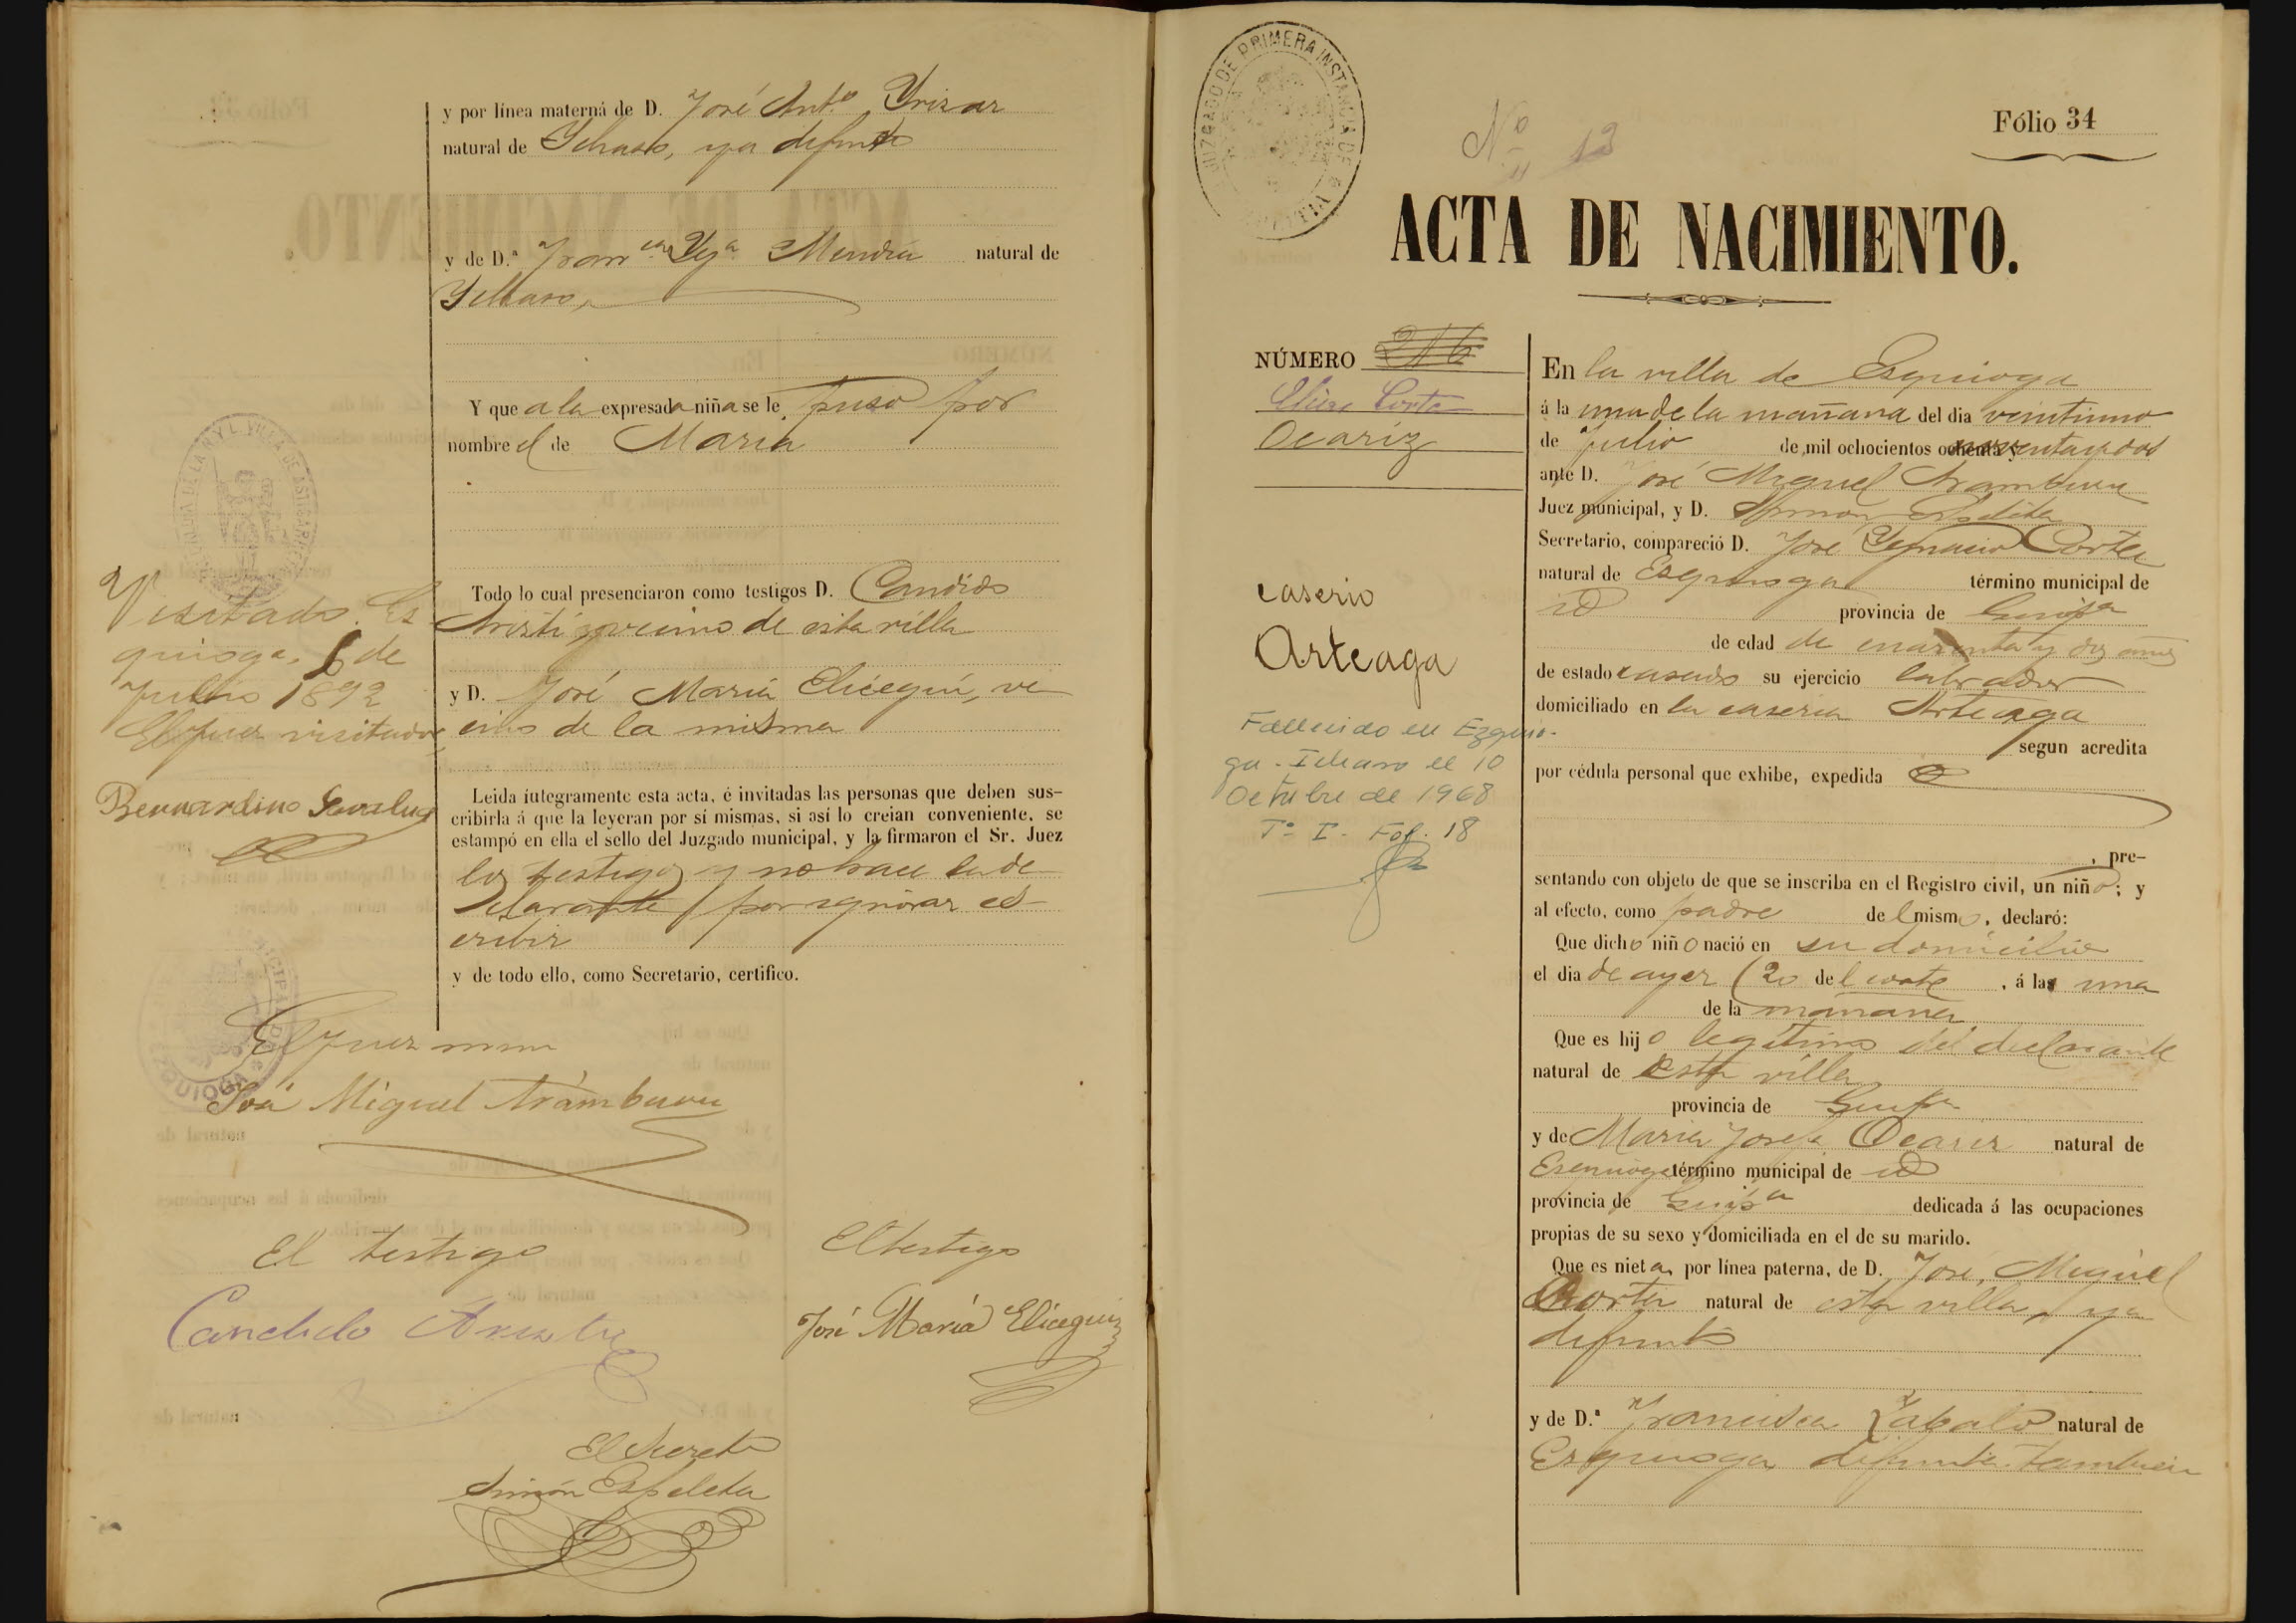 y por línea materna de D. José Ant.º Yrizar
natural de Ychaso, ya difunto
y de D.ª Fran.ca Ygª Mendia natural de
Ychaso,
Y que a la expresada niña se le puso por
nombre el de Maria
Todo lo cual presenciaron como testigos D. Candido
Aristi vecino de esta villa
y D. José Maria Elicegui, ve
cino de la misma
Leida integramente esta acta, é invitadas las personas que deben sus-
cribirla á que la leyeran por sí mismas, si así lo creian conveniente, se
estampó en ella el sello del Juzgado municipal, y la firmaron el Sr. Juez
los testigos y no hace la de
clarante por ignorar es-
cribir
y de todo ello, como Secretario, certifico.
Visitado. Ez
quioga, 6 de
Julio 1892
El Juez visitador,
Bernardino
El Juez mun
José Miguel Aramburu
El testigo
Candido Aristi
El testigo
José María Elicegui
El Secret.º
Simón Espeleta
JUZGADO DE PRIMERA INSTANCIA DE
Nº 13
Fólio 34
ACTA DE NACIMIENTO.
NÚMERO 216
Elias Corta
Ocariz
caserio
Arteaga
Fallecido en Ezquio-
ga-Ichaso el 10
Octubre de 1968
Tº I- Fol. 18
En la villa de Ezquioga
á la una de la mañana del dia veintiuno
de Julio de mil ochocientos noventa y dos
ante D. José Miguel Aramburu
Juez municipal, y D. Simon Espeleta
Secretario, compareció D. José Ygnacio Corta
natural de Ezquioga término municipal de
id provincia de Guip.ª
de edad de cuarenta y dos años
de estado casado su ejercicio labrador
domiciliado en la caseria Arteaga
segun acredita
por cédula personal que exhibe, expedida
, pre-
sentando con objeto de que se inscriba en el Registro civil, un niño; y
al efecto, como padre del mismo, declaró:
Que dicho niño nació en su domicilio
el dia de ayer (20 del corte , á la una
de la mañana
Que es hijo legitimo del declarante
natural de esta villa
provincia de Guip.ª
y de Maria Josefa Ocariz natural de
Ezquioga término municipal de id
provincia de Guip.ª dedicada á las ocupaciones
propias de su sexo y domiciliada en el de su marido.
Que es nieta, por línea paterna, de D. José Miguel
Corta natural de esta villa, ya
difunto
y de D.ª Francisca Zabalo natural de
Ezquioga difunta tambien